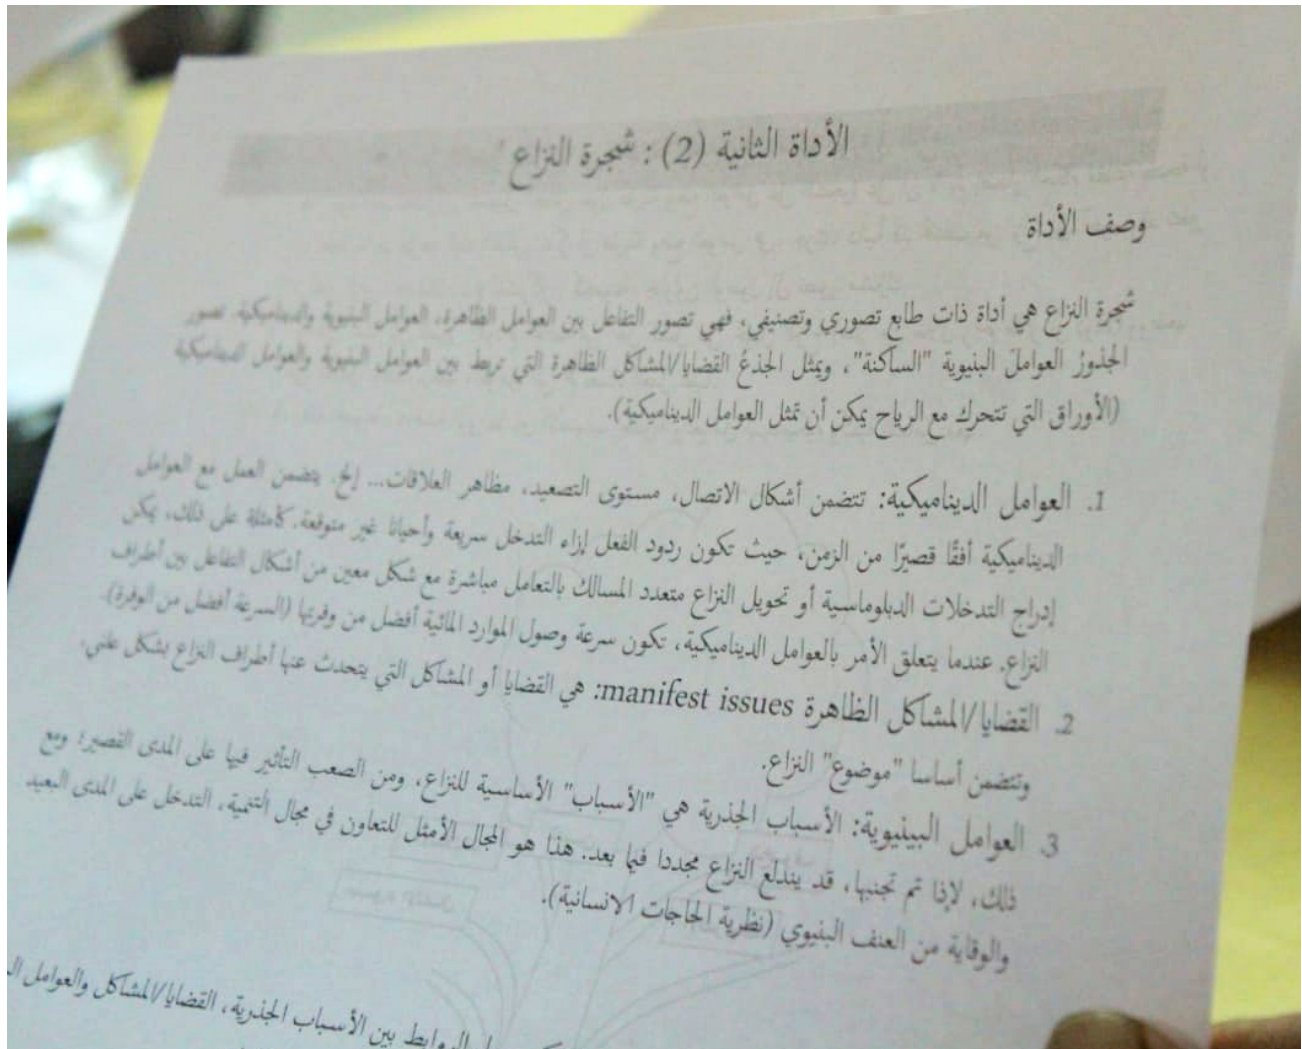 الأداة الثانية (2) : شجرة النزاع
وصف الأداة
شجرة النزاع هي أداة ذات طابع تصوري وتصنيفي، فهي تصور التفاعل بين العوامل الظاهرة، العوامل البنيوية والديناميكية. تصور
الجذورُ العواملَ البنيوية "الساكنة"، ويمثل الجذعُ القضايا/المشاكل الظاهرة التي تربط بين العوامل البنيوية والعوامل الديناميكية
(الأوراق التي تتحرك مع الرياح يمكن أن تمثل العوامل الديناميكية).
1. العوامل الديناميكية: تتضمن أشكال الاتصال، مستوى التصعيد، مظاهر العلاقات... إلخ. يتضمن العمل مع العوامل
الديناميكية أفقًا قصيرًا من الزمن، حيث تكون ردود الفعل إزاء التدخل سريعة وأحيانا غير متوقعة. كأمثلة على ذلك، يمكن
إدراج التدخلات الدبلوماسية أو تحويل النزاع متعدد المسالك بالتعامل مباشرة مع شكل معين من أشكال التفاعل بين أطراف
النزاع. عندما يتعلق الأمر بالعوامل الديناميكية، تكون سرعة وصول الموارد المالية أفضل من وفرتها (السرعة أفضل من الوفرة).
2. القضايا/المشاكل الظاهرة manifest issues: هي القضايا أو المشاكل التي يتحدث عنها أطراف النزاع بشكل علني.
وتتضمن أساسا "موضوع" النزاع.
3. العوامل البينيوية: الأسباب الجذرية هي "الأسباب" الأساسية للنزاع، ومن الصعب التأثير فيها على المدى القصير؛ ومع
ذلك، لإذا تم تجنبها، قد يندلع النزاع مجددا فيما بعد. هذا هو المجال الأمثل للتعاون في مجال التنمية، التدخل على المدى البعيد
والوقاية من العنف البنيوي (نظرية الحاجات الانسانية).
الروابط بين الأسباب الجذرية، القضايا/المشاكل والعوامل